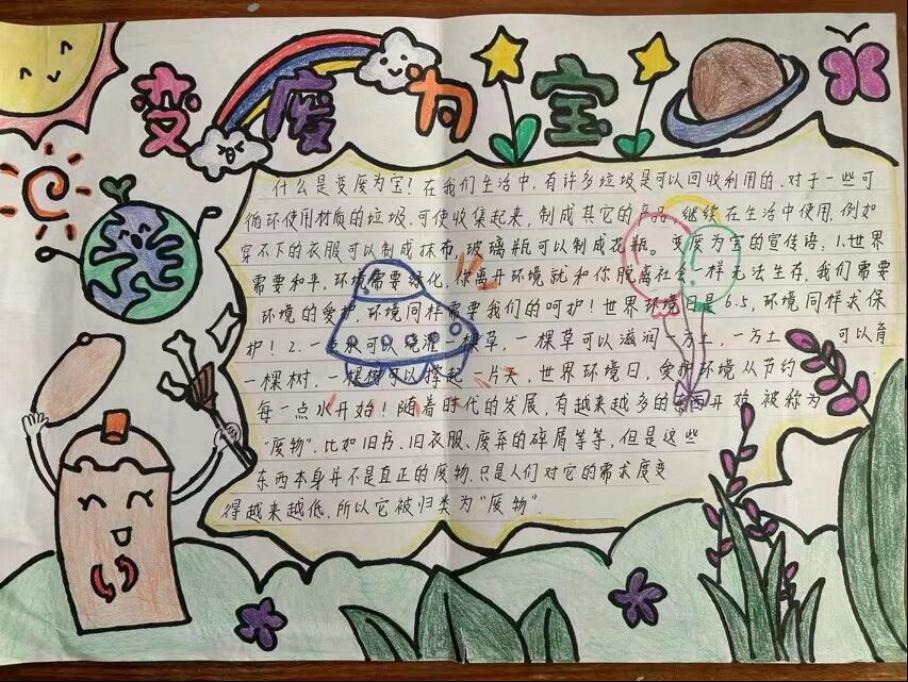 变废为宝
什么是变废为宝?在我们生活中,有许多垃圾是可以回收利用的.对于一些可
循环使用材质的垃圾.可使收集起来,制成其它的产品.继续在生活中使用.例如
穿不下的衣服可以制成抹布,玻璃瓶可以制成花瓶。变废为宝的宣传语:1.世界
需要和平,环境需要绿化,你离开环境就和你脱离社会一样无法生存,我们需要
环境的爱护,环境同样需要我们的呵护!世界环境日是6.5,环境同样求保
护!2.一点水可以浇灌一棵草,一棵草可以滋润一方土,一方土 可以育
一棵树,一棵树可以撑起一片天,世界环境日,爱护环境从节约
每一点水开始!随着时代的发展,有越来越多的东西开始被称为
“废物”,比如旧书、旧衣服、废弃的碎屑等等,但是这些
东西本身并不是真正的废物.只是人们对它的需求度变
得越来越低.所以它被归类为“废物”.